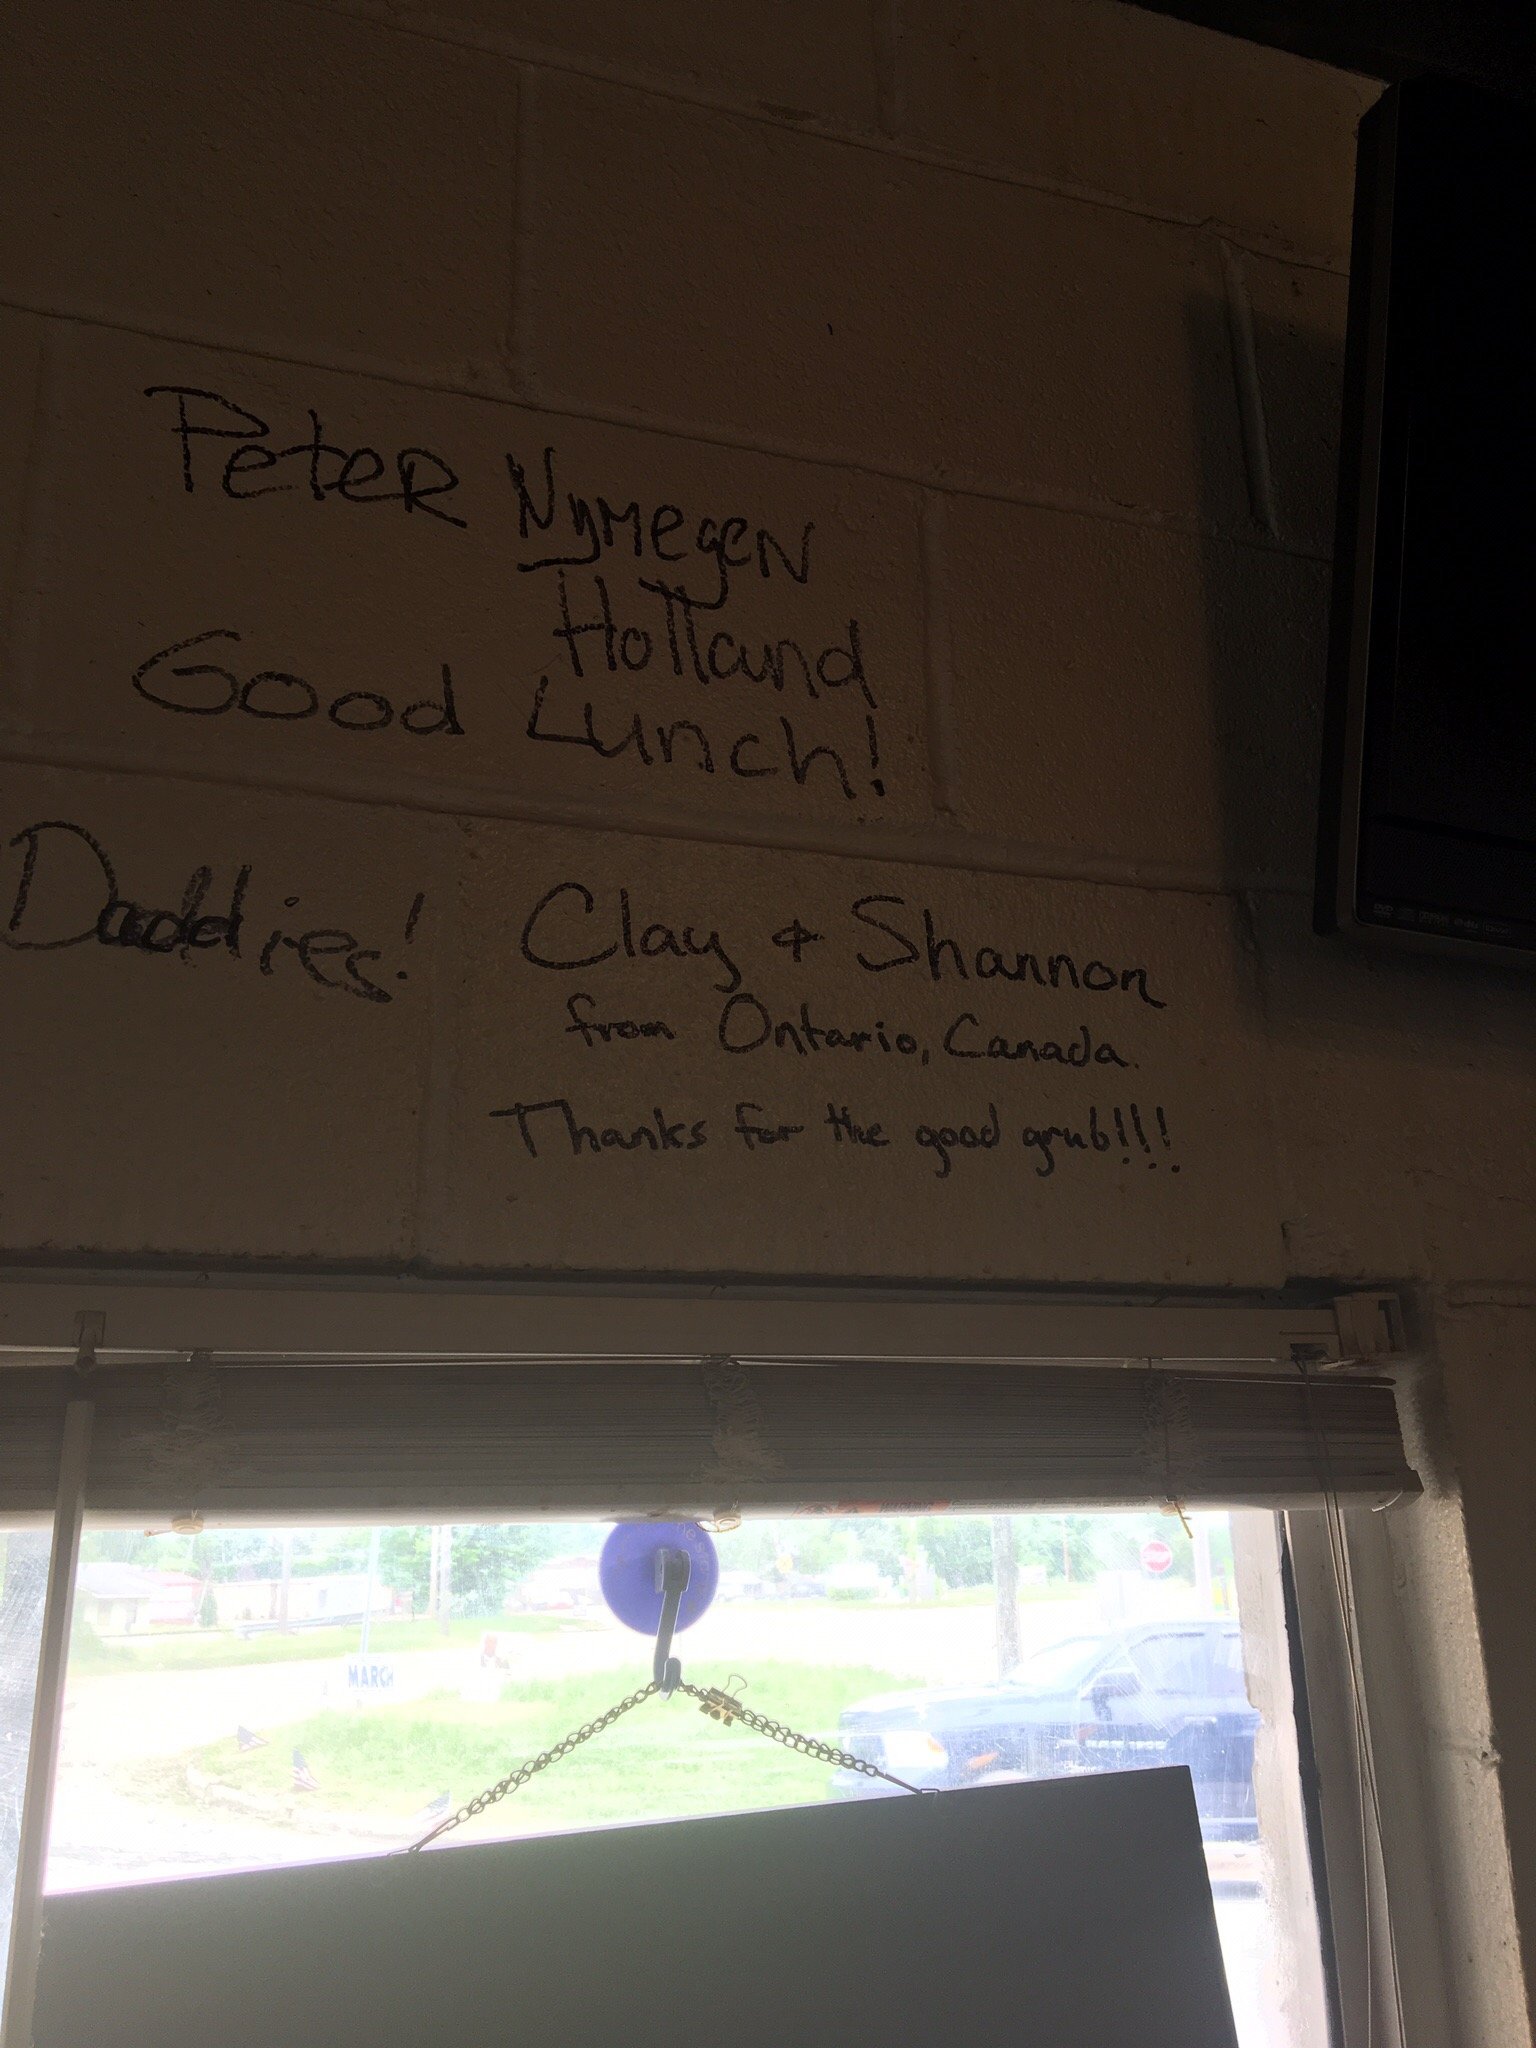 Peter Nymegen
Holland
Good Lunch!
Daddies!
Clay & Shannon
from Ontario, Canada.
Thanks for the good grub!!!
MARCH